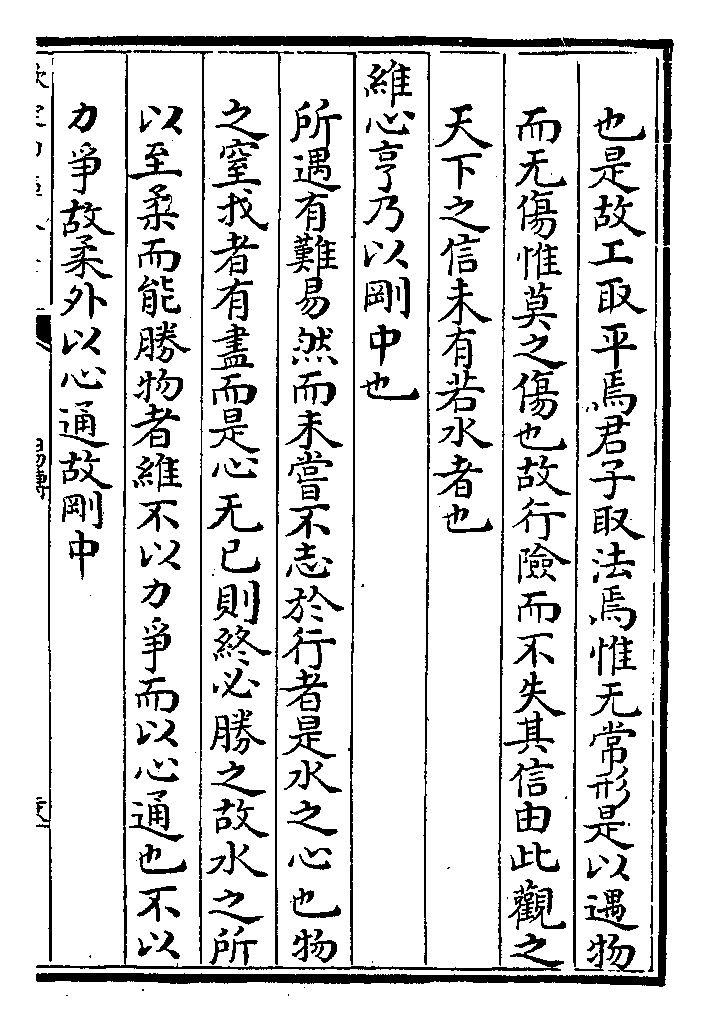 也是故工取平焉君子取法焉惟无常形是以遇物
而无傷惟莫之傷也故行險而不失其信由此觀之
天下之信未有若水者也
維心亨乃以剛中也
所遇有難易然而未嘗不志於行者是水之心也物
之窒我者有盡而是心无已則終必勝之故水之所
以至柔而能勝物者維不以力爭而以心通也不以
力爭故柔外以心通故剛中